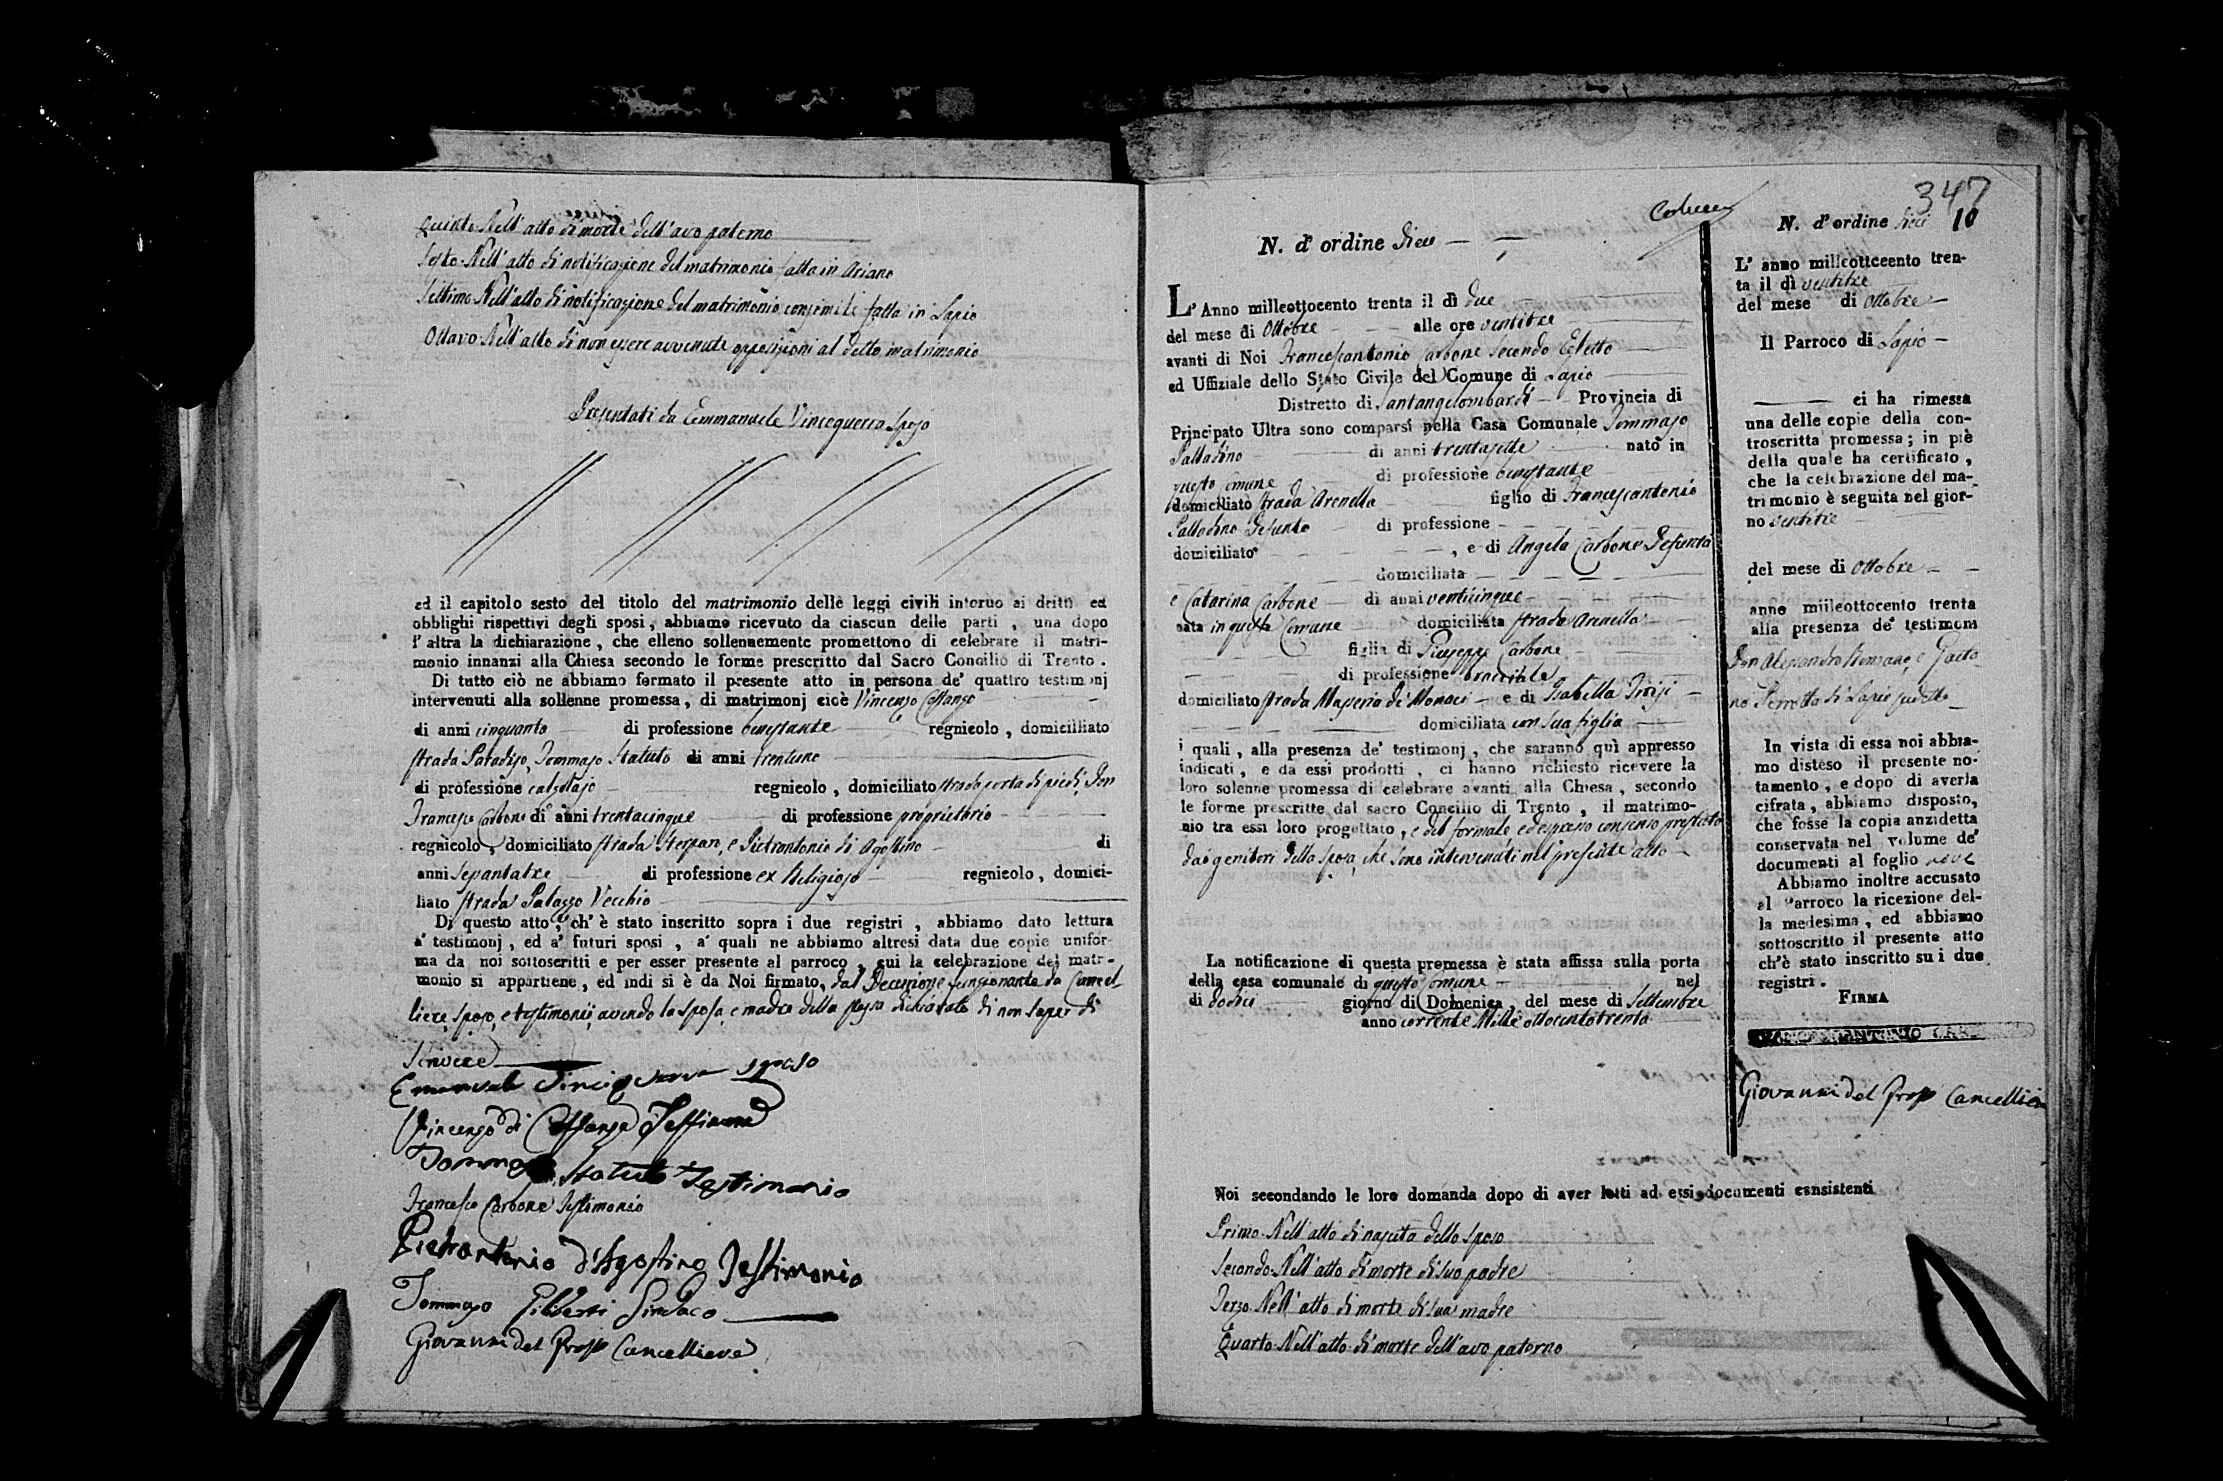 Quinto Nell'atto di morte dell'avo paterno
Sesto Nell'atto di notificazione del matrimonio fatta in Ariano
Settimo Nell'atto di notificazione del matrimonio consimile fatta in Lapio
Ottavo Nell'atto di non essere avvenute opposizioni al detto matrimonio
Presentati da Emmanuele Vinceguerra sposo
ed il capitolo sesto del titolo del matrimonio delle leggi civili intorno ai dritti ed
obblighi rispettivi degli sposi, abbiamo ricevuto da ciascun delle parti , una dopo
l'altra la dichiarazione, che elleno sollennemente promettono di celebrare il matri-
monio innanzi alla Chiesa secondo le forme prescritto dal Sacro Concilio di Trento.
Di tutto ciò ne abbiamo formato il presente atto in persona de' quattro testimonj
intervenuti alla sollenne promessa, di matrimonj cioè Vincenzo
di anni cinquanta di professione benestante regnicolo, domicilliato
strada Paradiso, Tommaso Statuto di anni trentuno
di professione calzolajo regnicolo, domiciliato strada porta di piedi, Don
Francesco Carbone di anni trentacinque di professione proprietario
regnicolo, domiciliato strada e Pietrantonio di Agostino di
anni di professione ex Religioso regnicolo, domici-
liato strada Palazzo Vecchio
Di questo atto, ch'è stato inscritto sopra i due registri, abbiamo dato lettura
a' testimonj, ed a' futuri sposi, a' quali ne abbiamo altresì data due copie unifor-
ma da noi sottoscritti e per esser presente al parroco, cui la celebrazione del matr-
monio si appartiene, ed indi si è da Noi firmato, dal Decurione funzionante da Cancel
liere, sposo, e testimonii, avendo la sposa, e madre della stessa dichiarato di non saper di
scrivere
sposo
Vincenzo di Testimonio
Tommaso Statuto Testimonio
Francesco Carbone Testimonio
Pietrantonio d'Agostino Testimonio
Tommaso Filiberti Sindaco
Giovanni del Prosp Cancelliere
347
N. d'ordine Dieci
L'Anno milleottocento trenta il dì due
del mese di Ottobre alle ore ventitre
avanti di Noi Francescantonio Carbone Secondo Eletto
ed Uffiziale dello Stato Civile del Comune di Lapio
Distretto di Santangelombardi Provincia di
Principato Ultra sono comparsi nella Casa Comunale Tommaso
Palladino di anni trentasette nato in
questo Comune di professione benestante
domiciliato strada Arenella figlio di Francescantonio
Palladino defunto di professione
domiciliato , e di Angela Carbone defunta
domiciliata
e Catarina Carbone di anni venticinque
nata in questo Comune domiciliata strada Arenella
figlia di Giuseppe Carbone
di professione bracciale
domiciliato strada Masseria de' Monaci e di Isabella
domiciliata con sua figlia
i quali, alla presenza de' testimonj, che saranno quì appresso
indicati, e da essi prodotti, ci hanno richiesto ricevere la
loro solenne promessa di celebrare avanti alla Chiesa, secondo
le forme prescritte dal sacro Concilio di Trento, il matrimo-
nio tra essi loro progettato, e del formale ed espresso consenso prestato
dai genitori della sposa, che sono intervenuti nel presente atto
La notificazione di questa promessa è stata affissa sulla porta
della casa comunale di questo Comune nel
dì dodici giorno di Domenica, del mese di Settembre
anno corrente Mille ottocentotrenta
Noi secondando le loro domanda dopo di aver letti ad essi documenti consistenti
Primo Nell'atto di nascita dello sposo
Secondo Nell'atto di morte di suo padre
Terzo Nell'atto di morte di sua madre
Quarto Nell'atto di morte dell'avo paterno
N. d'ordine Dieci 10
L'anno milleottceento tren-
ta il dì ventitre
del mese di Ottobre
Il Parroco di Lapio
ci ha rimessa
una delle copie della con-
troscritta promessa; in piè
della quale ha certificato,
che la celebrazione del ma-
trimonio è seguita nel gior-
no ventitre
del mese di Ottobre
anno milleottocento trenta
alla presenza de' testimoni
Don Alessandro Romano, e Gaeta
no Perrotta di Lapio sudetto
In vista di essa noi abbia-
mo disteso il presente no-
tamento, e dopo di averla
cifrata, abbiamo disposto,
che fosse la copia anzidetta
conservata nel volume de'
documenti al foglio nove
Abbiamo inoltre accusato
al Parroco la ricezione del-
la medesima, ed abbiamo
sottoscritto il presente atto
ch'è stato inscritto su i due
registri.
FIRMA
Giovanni del Prosp Cancelliere